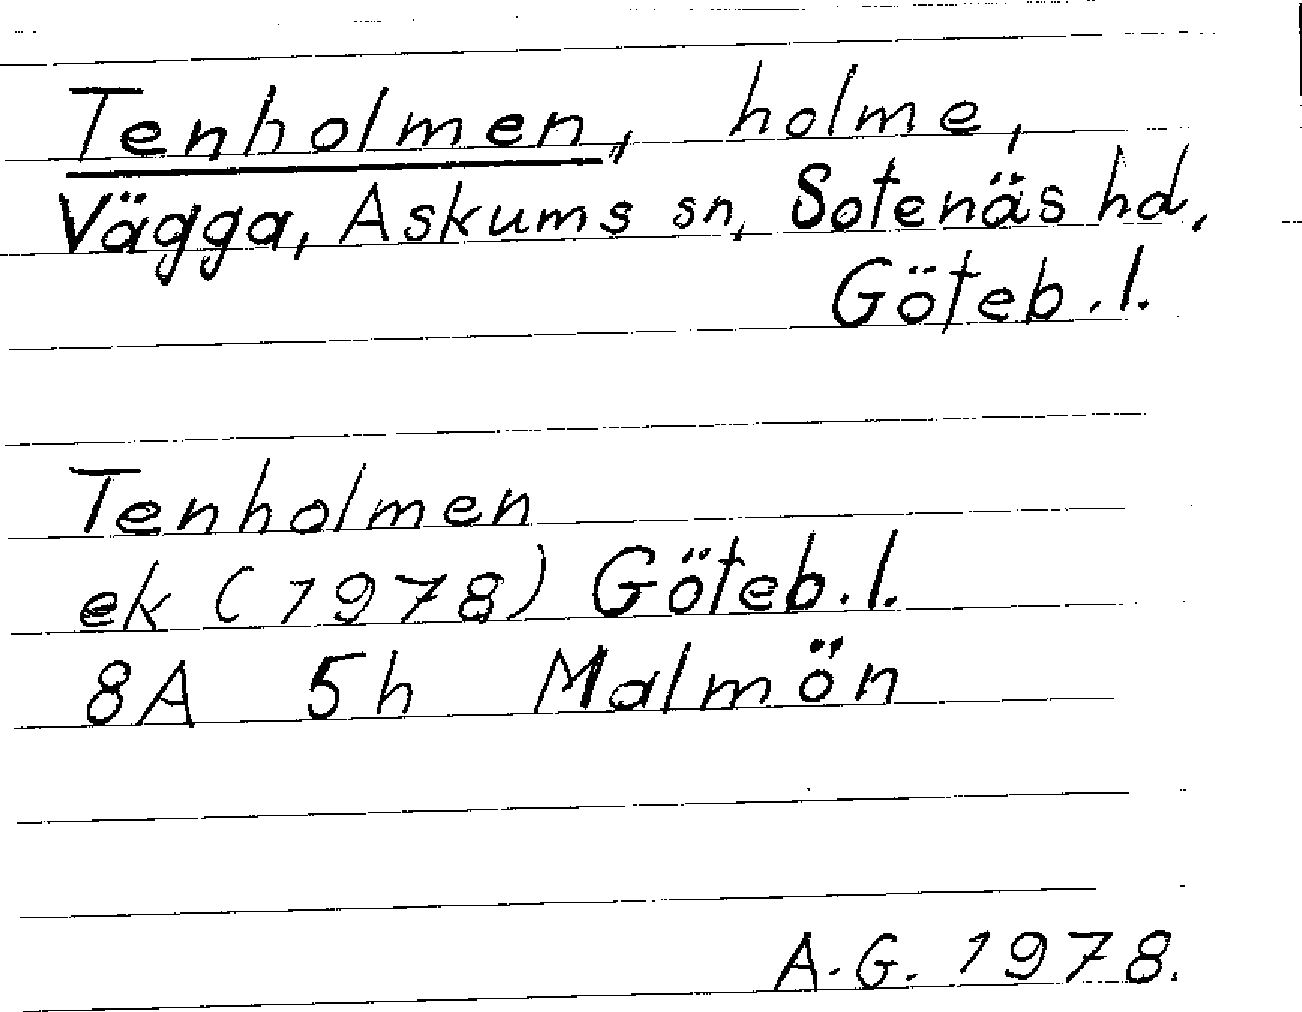 Tenholmen, holme,
Vägga, Askums sn, Sotenäs hd,
Göteb. l.
Tenholmen
ek (1978) Göteb. l.
8A 5h Malmön
A. G. 1978.